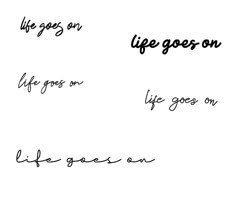 life goes on
life goes on
life goes on
life goes on
life goes on